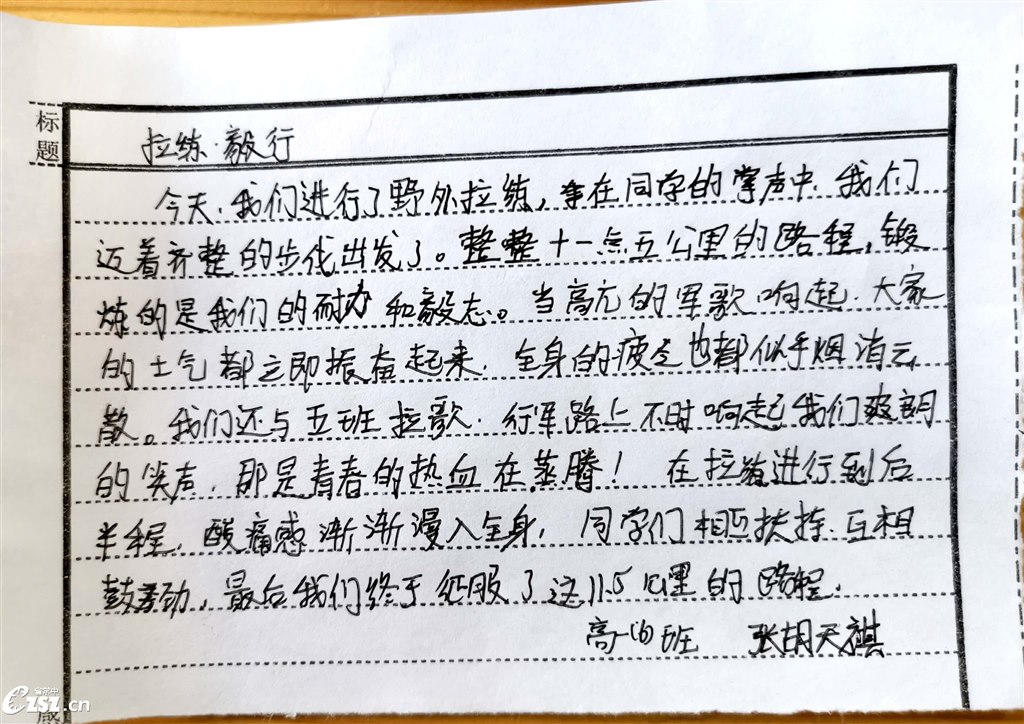 标题
拉练·毅行
今天,我们进行了野外拉练,在同学的掌声中,我们
迈着齐整的步伐出发了。整整十一点五公里的路程,锻
炼的是我们的耐力和毅志。当高亢的军歌响起,大家
的士气都立即振奋起来,全身的疲乏也都似乎烟消云
散。我们还与五班拉歌,行军路上不时响起我们爽朗
的笑声,那是青春的热血在蒸腾!在拉练进行到后
半程,酸痛感渐渐漫入全身,同学们相互扶持,互相
鼓劲,最后我们终于征服了这11.5公里的路程.
高一(6)班 张胡天祺
ezsz.cn